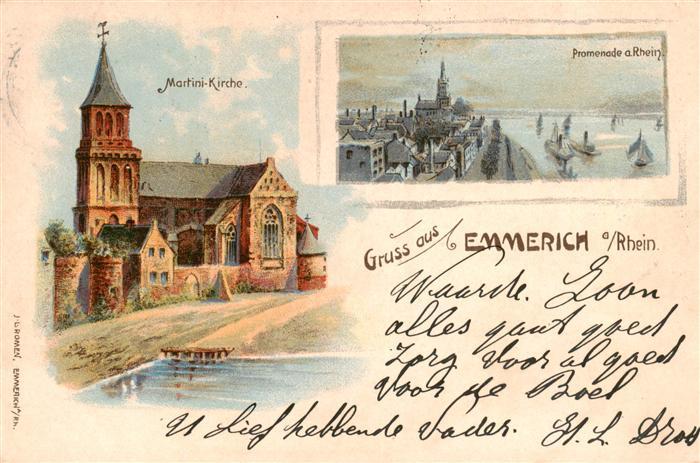 Martini-Kirche.
Promenade a. Rhein.
Gruss aus EMMERICH a/Rhein.
Waarde. Zoon
alles gaat goed
Zorg voor al goed
voor de Boel
U Lief hebbende Vader. H. L. Dros
J. L. ROMEN, EMMERICH a/Rh.